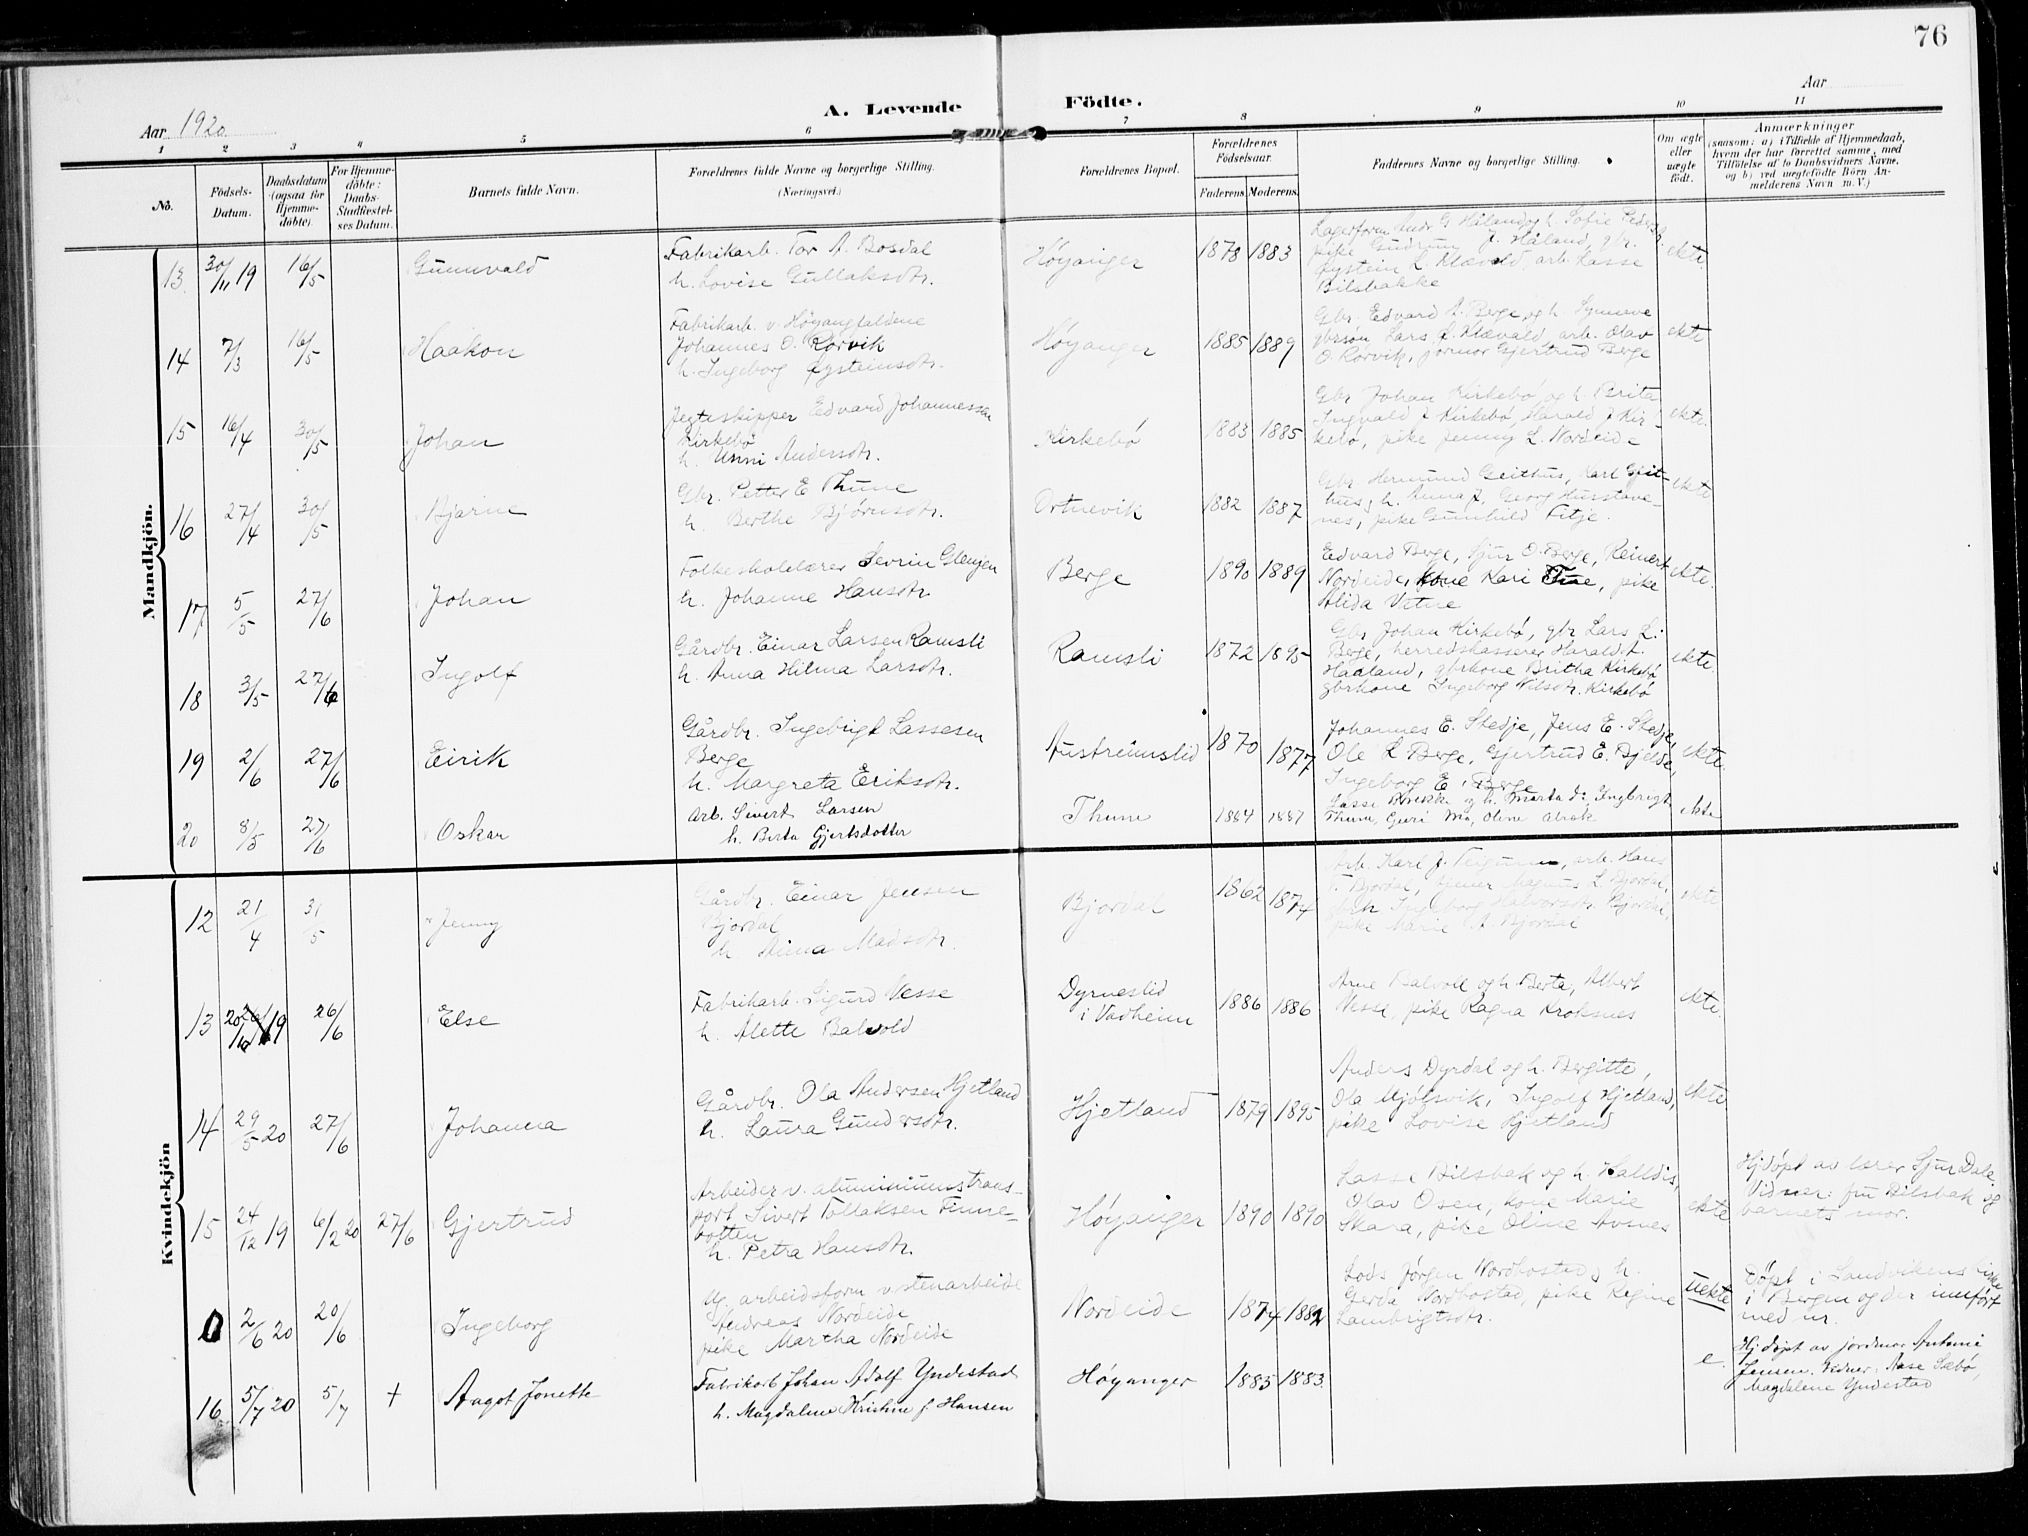 76
Aar 1920.
A. Levende Födte.
Aar
1 2 3 4 5 6 7 8 9 10 11
No.
Födsels-Datum.
Daabsdatum (ogsaa for Hjemmedöbte).
For Hjemmedöbte: Daabs-Stadfæstelses Datum.
Barnets fulde Navn.
Forældrenes fulde Navne og borgerlige Stilling. (Næringsvei.)
Forældrenes Bopæl.
Forældrenes Födselsaar.
Faderens. Moderens.
Faddernes Navne og borgerlige Stilling.
Om ægte eller uægte födt.
Anmærkninger
(saasom: a) i Tilfælde af Hjemmedaab, hvem der har forrettet samme, med Tilföielse af to Daabsvidners Navne, og b) ved uægtefödte Börn Anmelderens Navn m. V.)
Mandkjön.
13 30/11 19 16/5 Gunnvald
Fabrikarb. Tor A. Bosdal
h. Lovise Gullaksdtr.
Høyanger 1878 1883
Lagerform Andr G Håland og h. Sofie
pike Gudrun J. Håland, gbr.
Øystein L Klævold, arb. Lasse
Bilsbakke
ekte.
14 7/3 16/5 Haakon
Fabrikarb. v. Høyangfaldene
Johannes O. Rørvik
h. Ingeborg Øysteinsdtr.
Høyanger 1885 1889
Gbr. Edvard A. Berge og h. Synneve
gbrsøn Lars L Klævald, arb. Olav
O. Rørvik, jormor Gjertrud Berge
ekte
15 16/4 30/5 Johan
Jegteskipper Edvard Johannessen
Kirkebø
h. Unni Andersdtr.
Kirkebø 1883 1885
Gbr Johan Kirkebø og h. Brita
Ingvald J Kirkebø, Harald J Kir-
kebø, pike Jenny L. Nordeide
ekte.
16 27/4 30/5 Bjarne
Gbr. Petter E Thune
h. Berthe Bjørnsdtr.
Ortnevik 1882 1887
Gbr. Hermund Geithus, Karl Geit-
hus, h. Anna J, Georg Husstave-
nes, pike Gunhild Fitje.
ekte
17 5/5 27/6 Johan
Folkeskolelærer Sevrin Glenjen
h. Johanne Hansdtr
Berge 1890 1889
Edvard Berge, Sjur O. Berge, Reinert
Nordeide, kone Kari Tue, pike
Alida Vetne
ekte.
18 3/5 27/6 Ingolf
Gårdbr. Einar Larsen Ramsli
h. Anna Hilma Larsdtr.
Ramsli 1872 1895
Gbr Johan Kirkebø, gbr Lars L.
Berge, herredskasserer Harald L.
Haaland, gbrkone Britha Kirkebø
gbrkone Ingeborg Nilsdtr. Kirkebø
ekte.
19 2/6 27/6 Eirik
Gårdbr. Ingebrigt Lassesen
Berge
h. Margreta Eriksdtr.
Austreimslid 1870 1877
Johannes E. Stedje, Jens E. Stedje,
Ole L Berge, Gjertrud E. Bjelde,
Ingeborg E. Berge
ekte.
20 8/5 27/6 Oskar
Arb. Sivert Larsen
h. Berta Gjertsdotter
Thune 1884 1887
Lasse og h. Marta d: Ingbrigt
Thune, Guri Mo, Oline
ekte
Kvindekjön
12 21/4 31/5 Jenny
Gårdbr. Einar Jensen
Bjordal
h. Anna Madsdtr.
Bjordal 1862 1874
Arb. Karl J. arb. Hans
T. Bjordal, Magnus L. Bjordal,
Ingeborg Halvorsdtr. Bjordal,
pike Marie A. Bjordal
ekte
13 20/10 19 26/6 Else
Fabrikarb. Sigurd Nesse
h. Alette Balvold
Dyrneslid
i Vadheim
1886 1886
Arne Balvoll og h. Berta, Albert
Nesse, pike Ragna Kroksnes
ekte.
14 29/5 20 27/6 Johanna
Gårdbr. Ola Andersen Hjetland
h. Laura Gundersdtr.
Hjetland 1879 1895
Anders Dyrdal og h. Bergitte,
Ola Mjølsvik, Ingolf Hjetland,
pike Lovise Hjetland
ekte
15 24/12 19 6/2 20 27/6 Gjertrud
Arbeider v. aluminiumstrans-
port Sivert Tollaksen Finne-
botten
h. Petra Hansdtr.
Høyanger 1890 1890
Lasse Bilsbak og h. Halldis,
Olav Osen, kone Marie
Skara, pike Oline Avsnes
ekte
Hj.døpt av lærer Sjur Dale.
Vidner: fru Bilsbak og
barnets mor.
0 2/6 20 20/6 Ingeborg
Ug. arbeidsform v. stenarbeide
Andreas Nordeide
pike Martha Nordeide
Nordeide 1874 1882
Lods Jørgen Nordbostad, h.
Gerda Nordbostad, pike Regine
Lambrigtsdtr.
Uekte
Døpt i Sandvikens kirke
i Bergen og der innført
med nr.
16 5/7 20 5/7 + Aagot Jonette
Fabrikarb Johan Adolf Yndestad
h. Magdalene Kristine f. Hansen
Høyanger 1885 1883.
e.
Hj.døpt av jordmor Antonie
Jensen. Vidner: Aase Sæbø,
Magdalene Yndestad